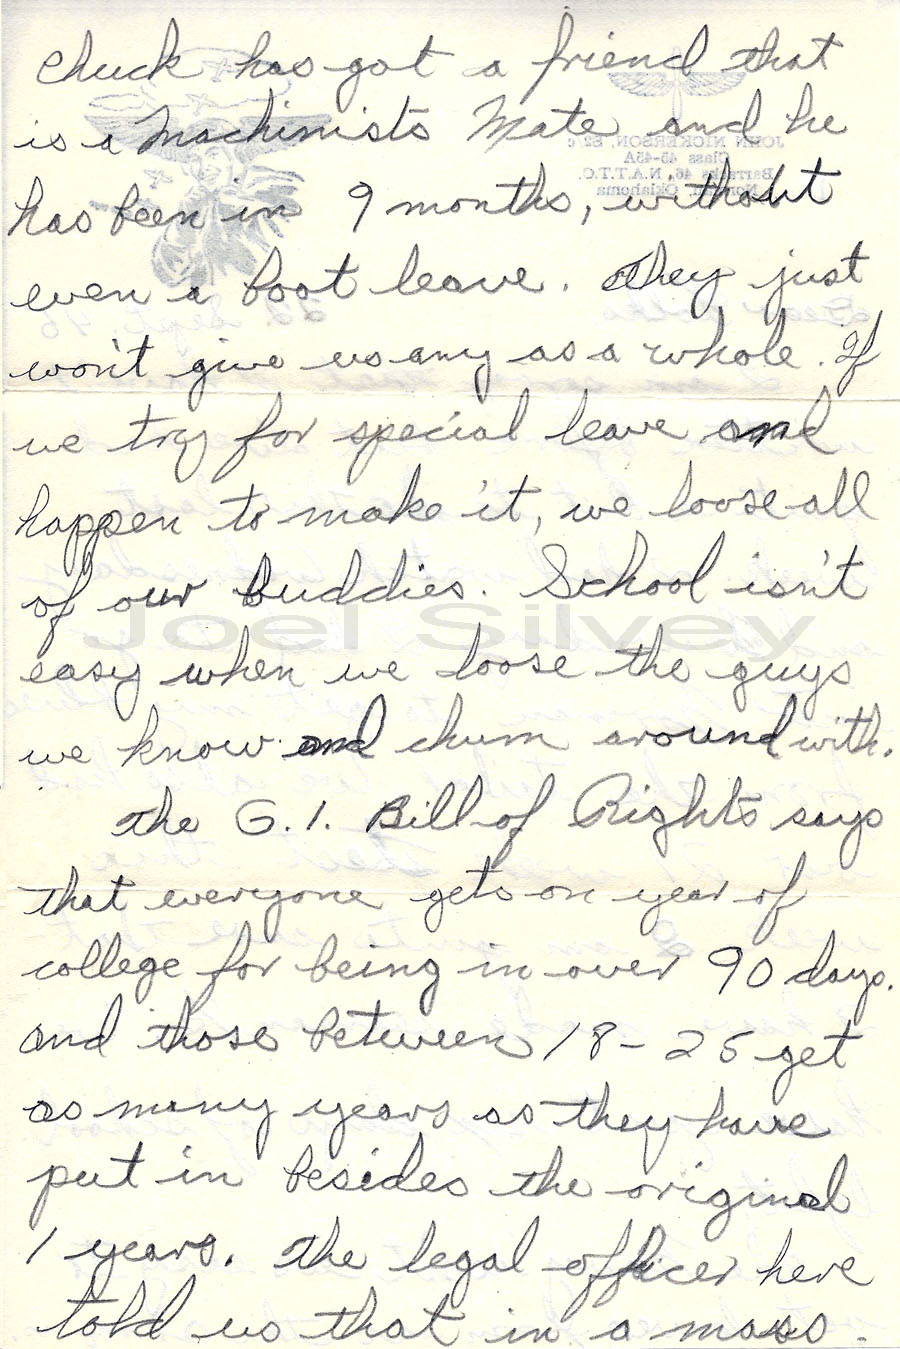 Chuck has got a friend that
is a Machinists Mate and he
has been in 9 months, without
even a boot leave. They just
won't give us any as a whole. If
we try for special leave and
happen to make it, we loose all
of our buddies. School isn't
easy when we loose the guys
we know and chum around with.
The G.I. Bill of Rights says
that everyone gets on year of
college for being in over 90 days.
and those between 18-25 get
as many years as they have
put in besides the original
1 years. The legal officer here
told us that in a mass.
JOHN NICKERSON, S2/c
Class 45-45A
Barracks 46, N.A.T.T.C.
Norman, Oklahoma
Sept. 45
Joel Silvey